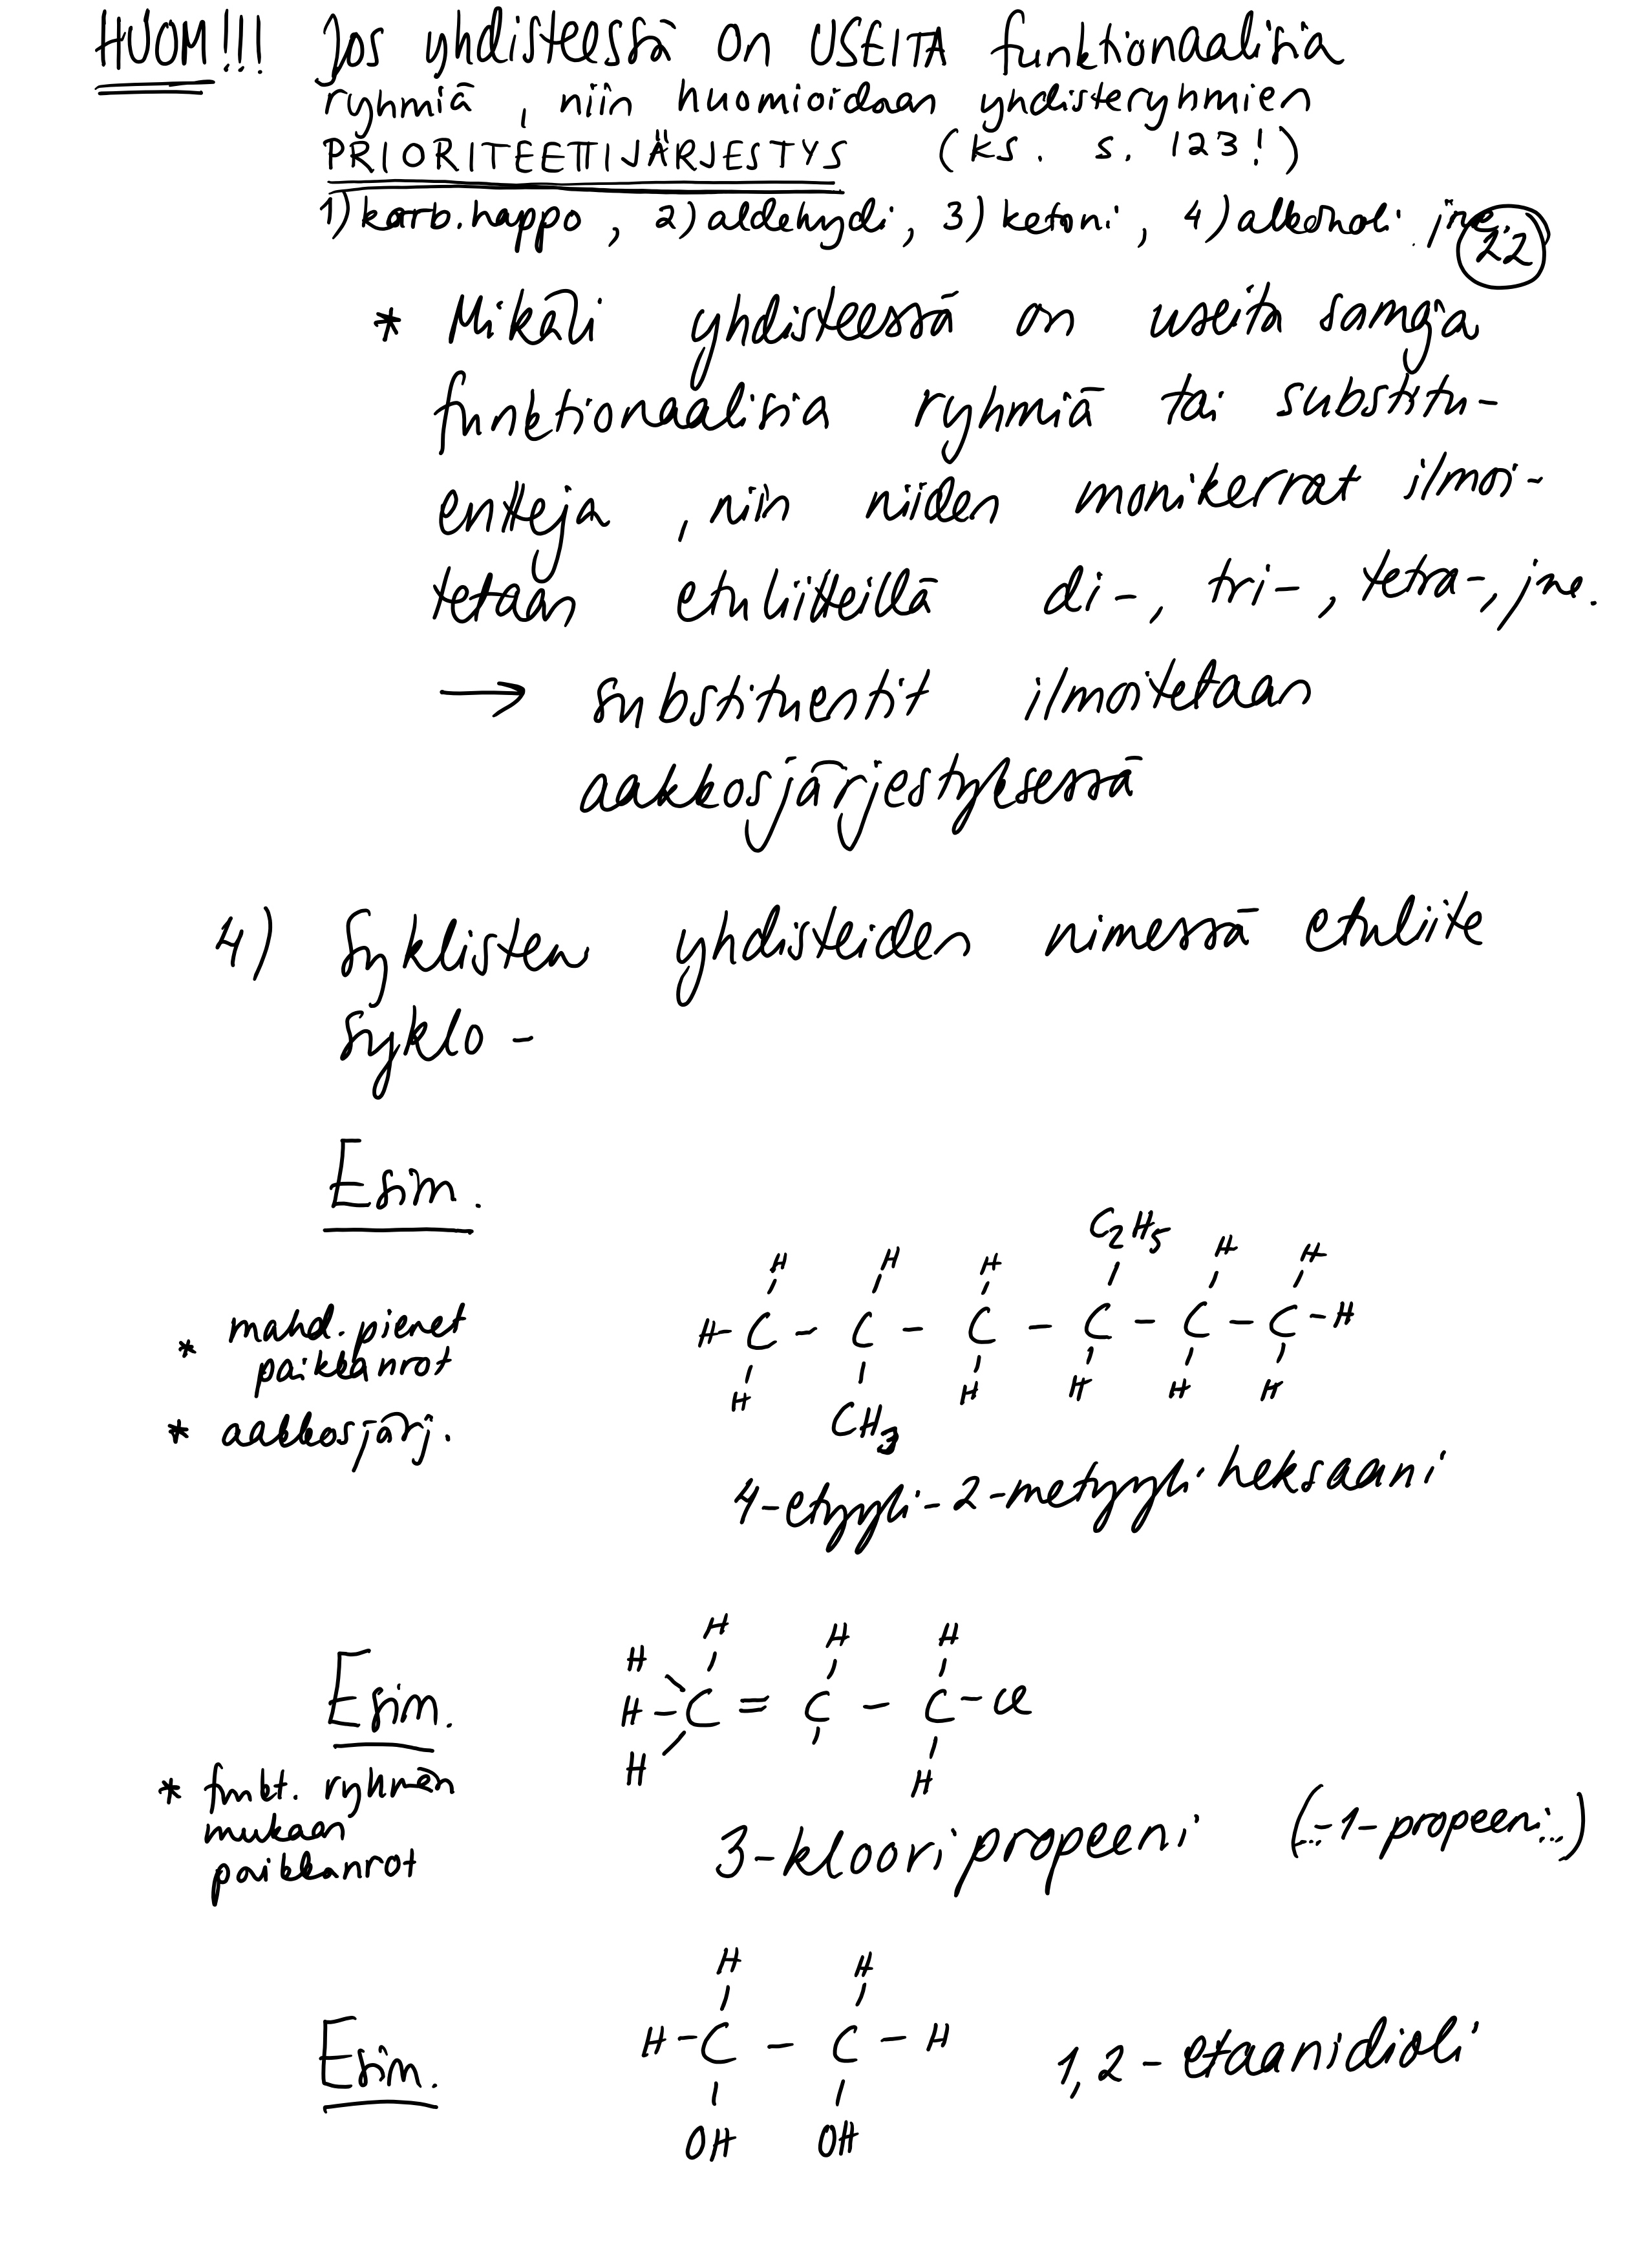 HUOM!!! Jos yhdisteessä on USEITA funktionaalisia
ryhmiä, niin huomioidaan yhdisteryhmien
PRIORITEETTIJÄRJESTYS (ks. s. 123!)
1) karb.happo, 2) aldehydi, 3) ketoni, 4) alkoholi jne.
22
* Mikäli yhdisteessä on useita samoja
funktionaalisia ryhmiä tai substitu-
entteja, niin niiden monikerrat ilmoi-
tetaan etuliitteillä di-, tri-, tetra-, jne.
→ substituentit ilmoitetaan
aakkosjärjestyksessä
4) Syklisten yhdisteiden nimessä etuliite
syklo-
Esim.
C2H5
H H H H H
* mahd. pienet
paikkanrot
H-C-C-C-C-C-C-H
H H H H H
* aakkosjärj.
CH3
4-etyyli-2-metyyliheksaani
H H H
H
Esim.
H-C=C-C-Cl
H H
* funkt. ryhmän
mukaan
paikkanrot
3-klooripropeeni (...-1-propeeni...)
H H
Esim.
H-C-C-H
1,2-etaanidioli
OH OH